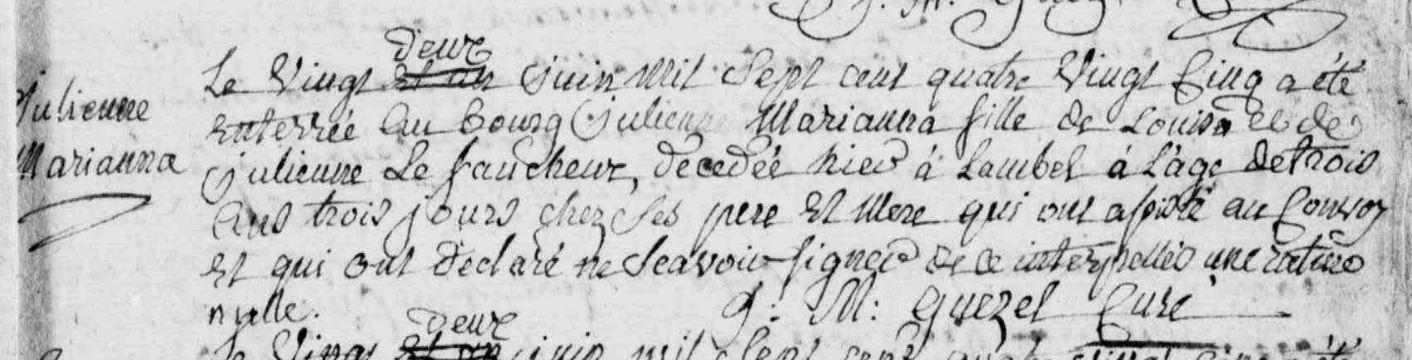 deux
Le Vingt et un juin mil Sept cent quatre Vingt Cinq a été
Julienne
enterrée au bourg Julienne Marianna fille de Louis et de
Marianna
Julienne Le faucheur, décedée hier à Lambel à l'âge de trois
ans trois jours chez Ses pere et Mere qui ont assisté au Convoy
et qui ont déclaré ne Scavoir signer de ce interpellés une rature
nulle. J: M: Guezel Curé
deux
Le Vingt et un juin mil Sept cent quatre vingt